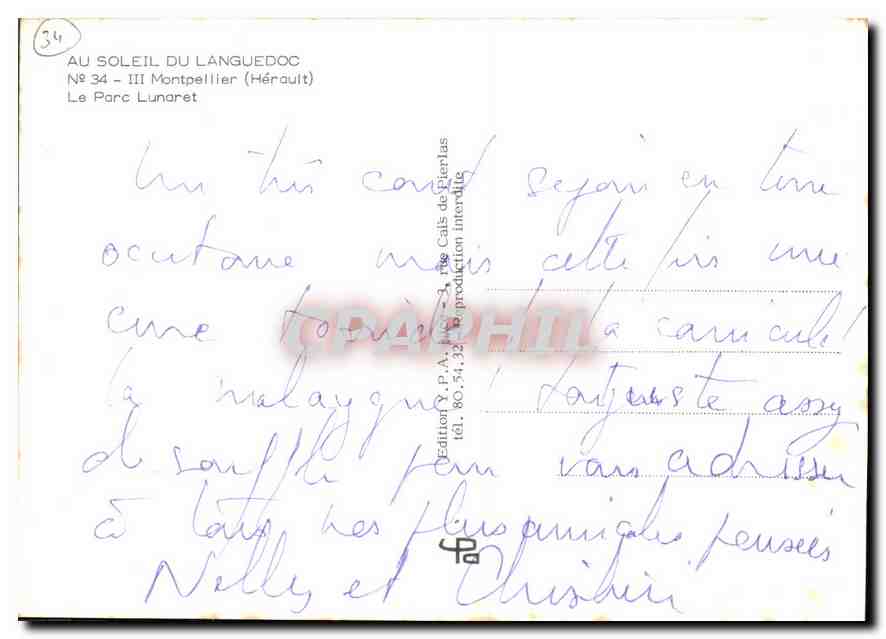 34
AU SOLEIL DU LANGUEDOC
Nº 34 - III Montpellier (Hérault)
Le Parc Lunaret
Un très court sejour en terre
occitane mais cette fois une
cure la canicule!
la juste assez
de souffle pour vous adresser
à tous nos plus amicales pensées
Nelly et
Edition Y.P.A. - 3, rue Caïs de Pierlas
tél. 80.54.32 Reproduction interdite
CPAPHIL